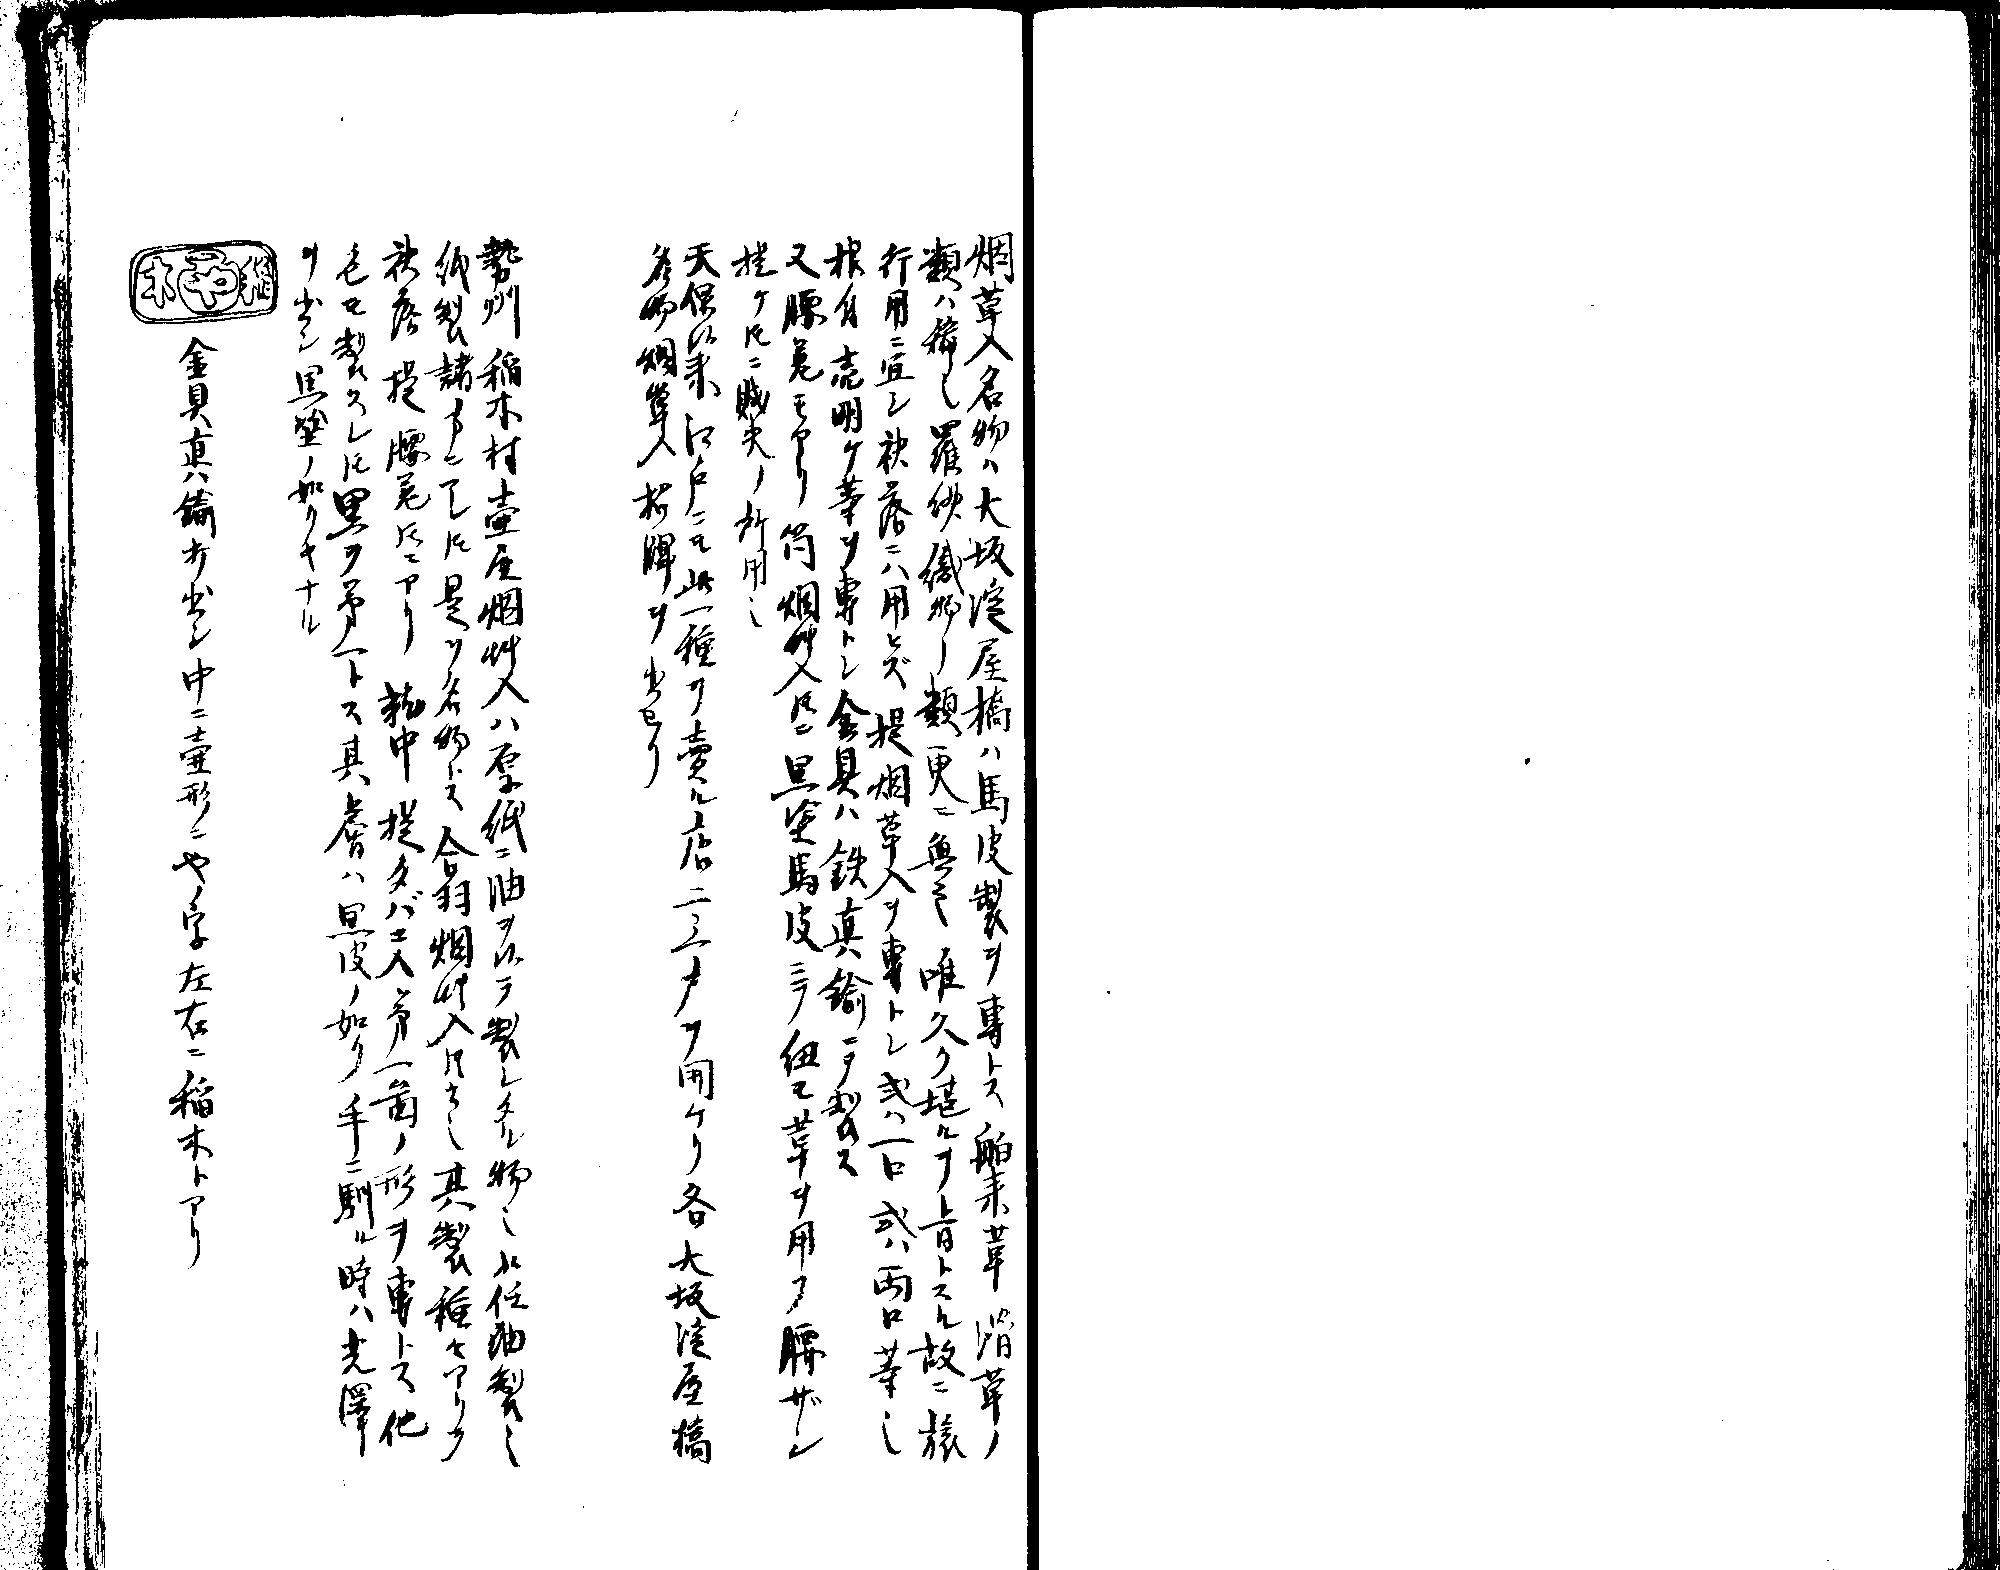 烟草入名物ハ大坂淀屋橋ハ馬皮製ヲ專トス舶来革滑革ノ
類ハ稀也羅紗織物ノ類更ニ無之唯久ク堪ルヲ旨トスル故ニ旅
行用ニ宜シ袂落ニハ用ヒズ提烟草入ヲ專トシ或ハ一口或ハ両口葢也
根付売明ケ葢ヲ專トシ金具ハ鉄真鍮ニテ製ス
又腰差モアリ筒烟艸入トモニ黒塗馬皮ニテ紐モ革ヲ用フ腰ザシ
提ケトモニ賎夫ノ所用也
天保以来江戸ニモ此一種ヲ賣ル店二三戸ヲ開ケリ各大坂淀屋橋
名物烟草入招牌ヲ出セリ
勢州稲木村壷屋烟艸入ハ厚紙ニ油ヲ以テ製シタル物也此任油製也
紙製諸方ニアレトモ是ヲ名物トス合羽烟艸入トモ云也其製種々アリテ
袂落提腰差トモニアリ就中提タバコ入第一図ノ形ヲ專トス他
色モ製スレトモ黒ヲ第一トス其膚ハ黒皮ノ如ク手ニ馴ル時ハ光澤
ヲ出シ黒塗ノ如クキナル
稲や木
金具真鍮ナ出シ中ニ壷形ニやノ字左右ニ稲木トアリ